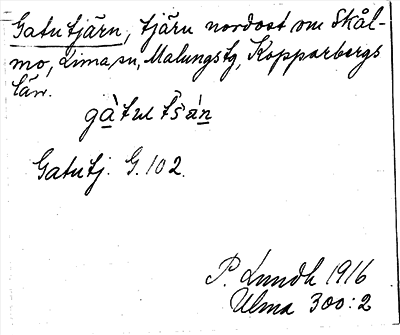 Gatutjärn, tjärn nordost om Skål-
mo, Lima sn, Malungs tg, Kopparbergs
län.
Gatutj. G. 102.
P. Lundh 1916
Ulma 300:2